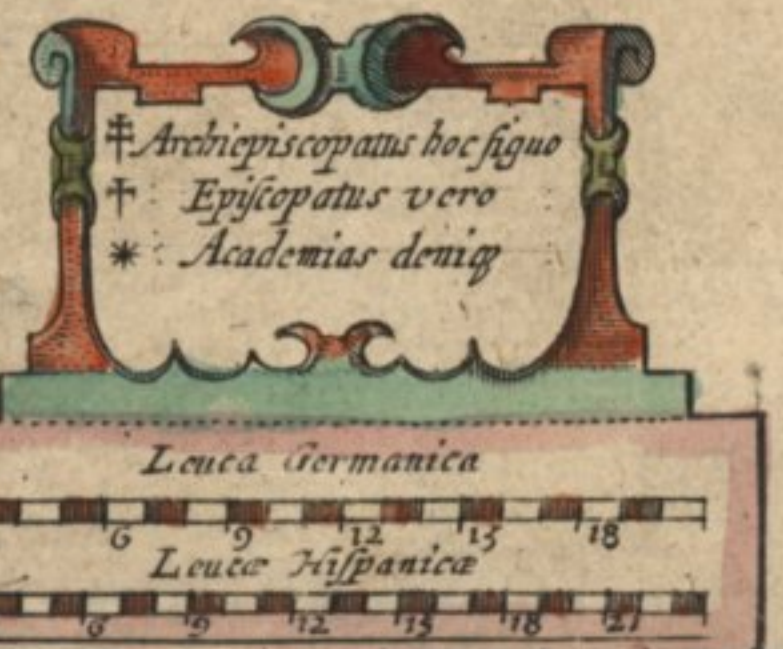 ‡ Archiepiscopatus hoc ſiguo
† : Epiſcopatus vero
* : Academias deniqꝫ
Leuca Germanica
6 9 12 15 18
Leucæ Hiſpanicæ
6 9 12 15 18 21